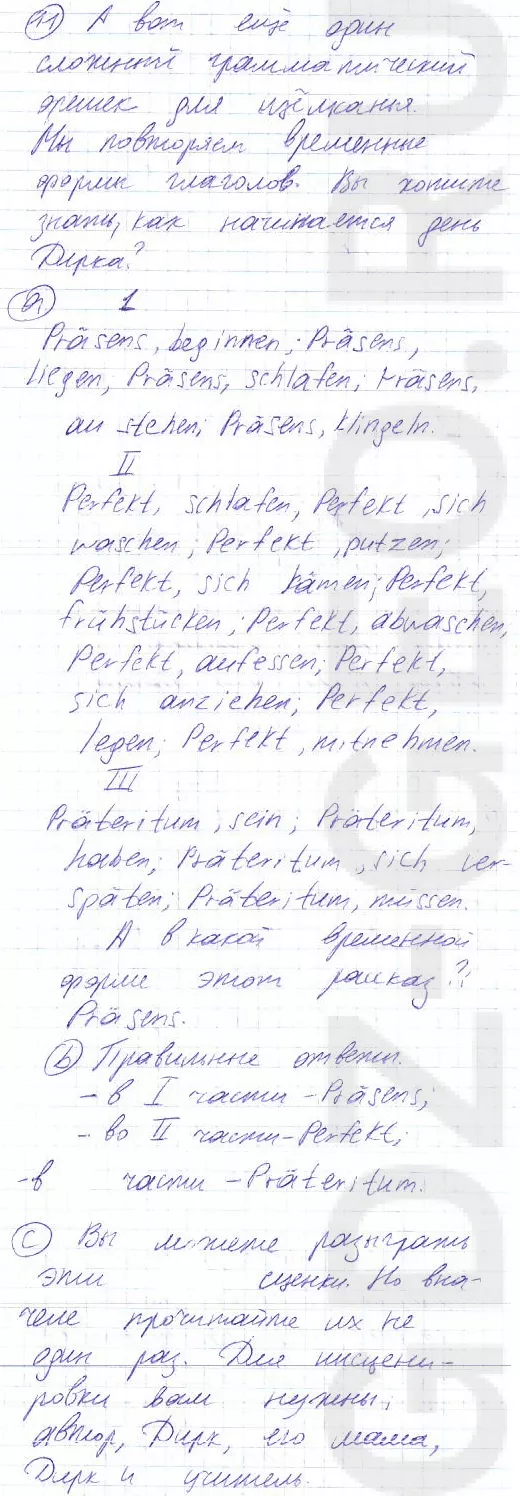 11) А вот ещё один
сложный грамматический
орешек для щёлканья.
Мы повторяем временные
формы глаголов. Вы хотите
знать, как начинается день
Дирка?
a) 1
Präsens, beginnen; Präsens,
liegen; Präsens, schlafen; Präsens,
au stehen; Präsens, klingeln.
II
Perfekt, schlafen, Perfekt, sich
waschen; Perfekt, putzen;
Perfekt, sich kämen; Perfekt,
frühstücken; Perfekt, abwaschen,
Perfekt, aufessen; Perfekt,
sich anziehen; Perfekt,
legen; Perfekt, mitnehmen.
III
Präteritum, sein; Präteritum,
haben; Präteritum, sich ver-
späten; Präteritum, müssen.
А в какой временной
форме этот рассказ?
Präsens.
b) Правильные ответы.
- в I части - Präsens;
- во II части - Perfekt;
- в части - Präteritum.
c) Вы можете разыграть
эти сценки. Но вна-
чале прочитайте их не
один раз. Для инсцени-
ровки вам нужны:
автор, Дирк, его мама,
Дирк и учитель.
GDZ-GEO.RU